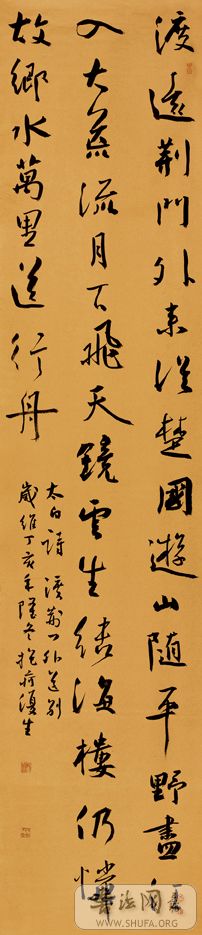 渡遠荊門外来從楚國遊山隨平野盡江
入大荒流月下飛天鏡雲生結海樓仍憐
故鄉水萬里送行舟
太白詩 渡荊門外送別
歲維丁亥年隆冬
書法网
WWW.SHUFA.ORG